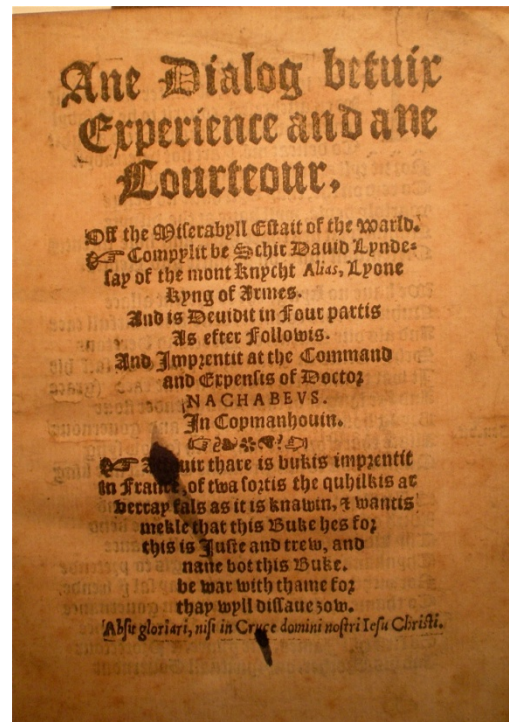 Ane Dialog betuix
Experience and ane
Courteour,
Off the Miserabyll Estait of the warld.
☞ Compylit be Schir Dauid Lynde-
say of the mont Knycht Alias, Lyone
Kyng of Armes.
And is Deuidit in Four partis
As efter Followis.
And Imprentit at the Command
and Expensis of Doctor
NACHABEVS.
In Copmanhouin.
☞ thare is bukis imprentit
in France, of twa sortis the quhilkis ar
verray fals as it is knawin, & wantis
mekle that this Buke hes for
this is Juste and trew, and
nane bot this Buke.
be war with thame for
thay wyll dissaue ȝow.
Absit gloriari, nisi in Cruce domini nostri Iesu Christi.